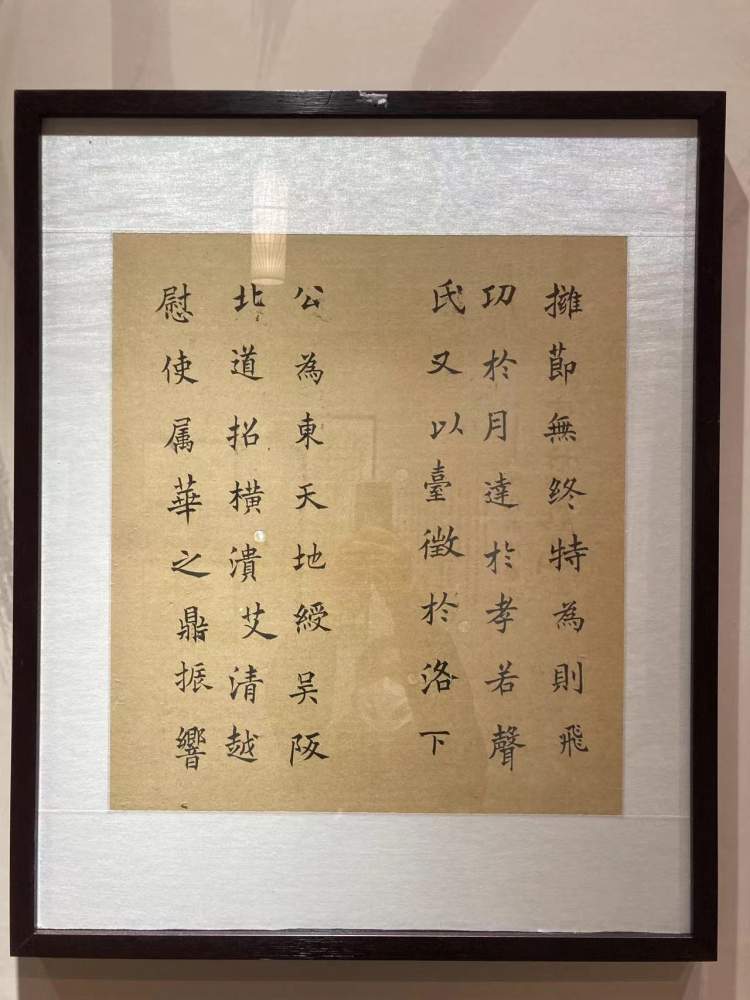 擁節無终特為則飛
功於月達於孝若聲
氏又以臺徵於洛下
公為東天地綬吴阪
北道招横潰艾清越
慰使属華之鼎振響